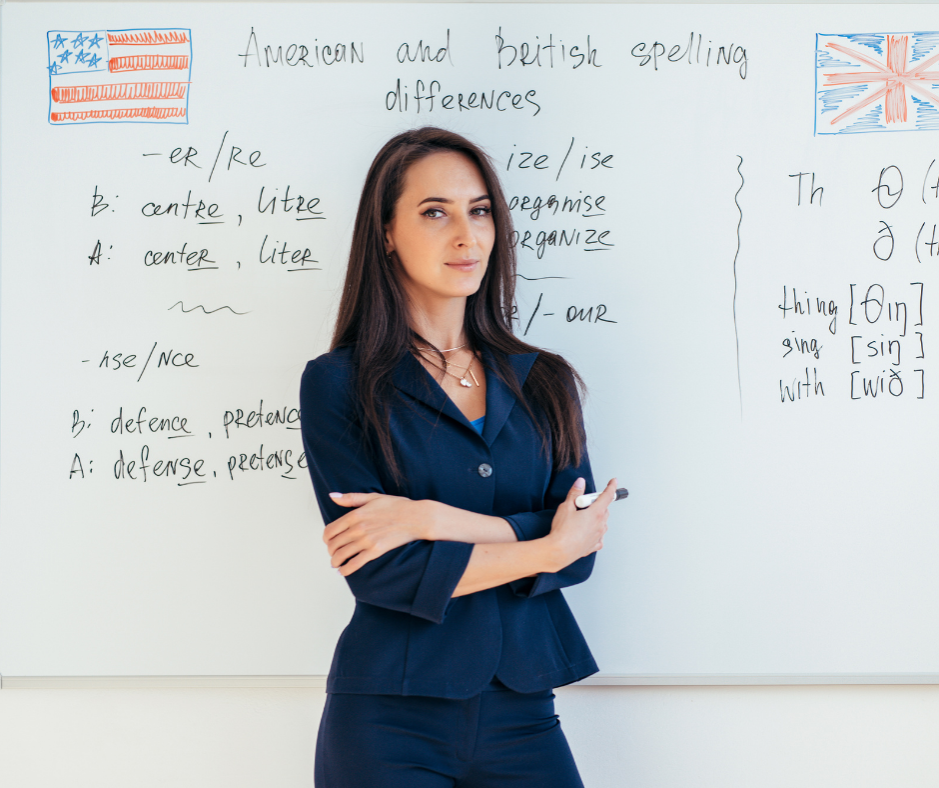 American and British spelling
differences
-er/re
B: centre, litre
A: center, liter
-nse/nce
B: defence, pretence
A: defense, pretense
ize/ise
organise
organize
/-our
Th θ
ð
thing [θıŋ]
sing [siŋ]
with [wið]